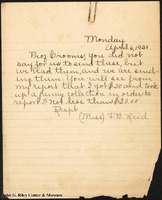 Monday
April 6, 1931
Prof Grooms, you did not
say for us to send these, but
we had them, and we are send-
ing them. You will see from
my report that I got $.50 and took
up a penny collection in order to
report. Not less than $2.10
Rept
(Miss) F. B. Reid
John G. Riley Center & Museum